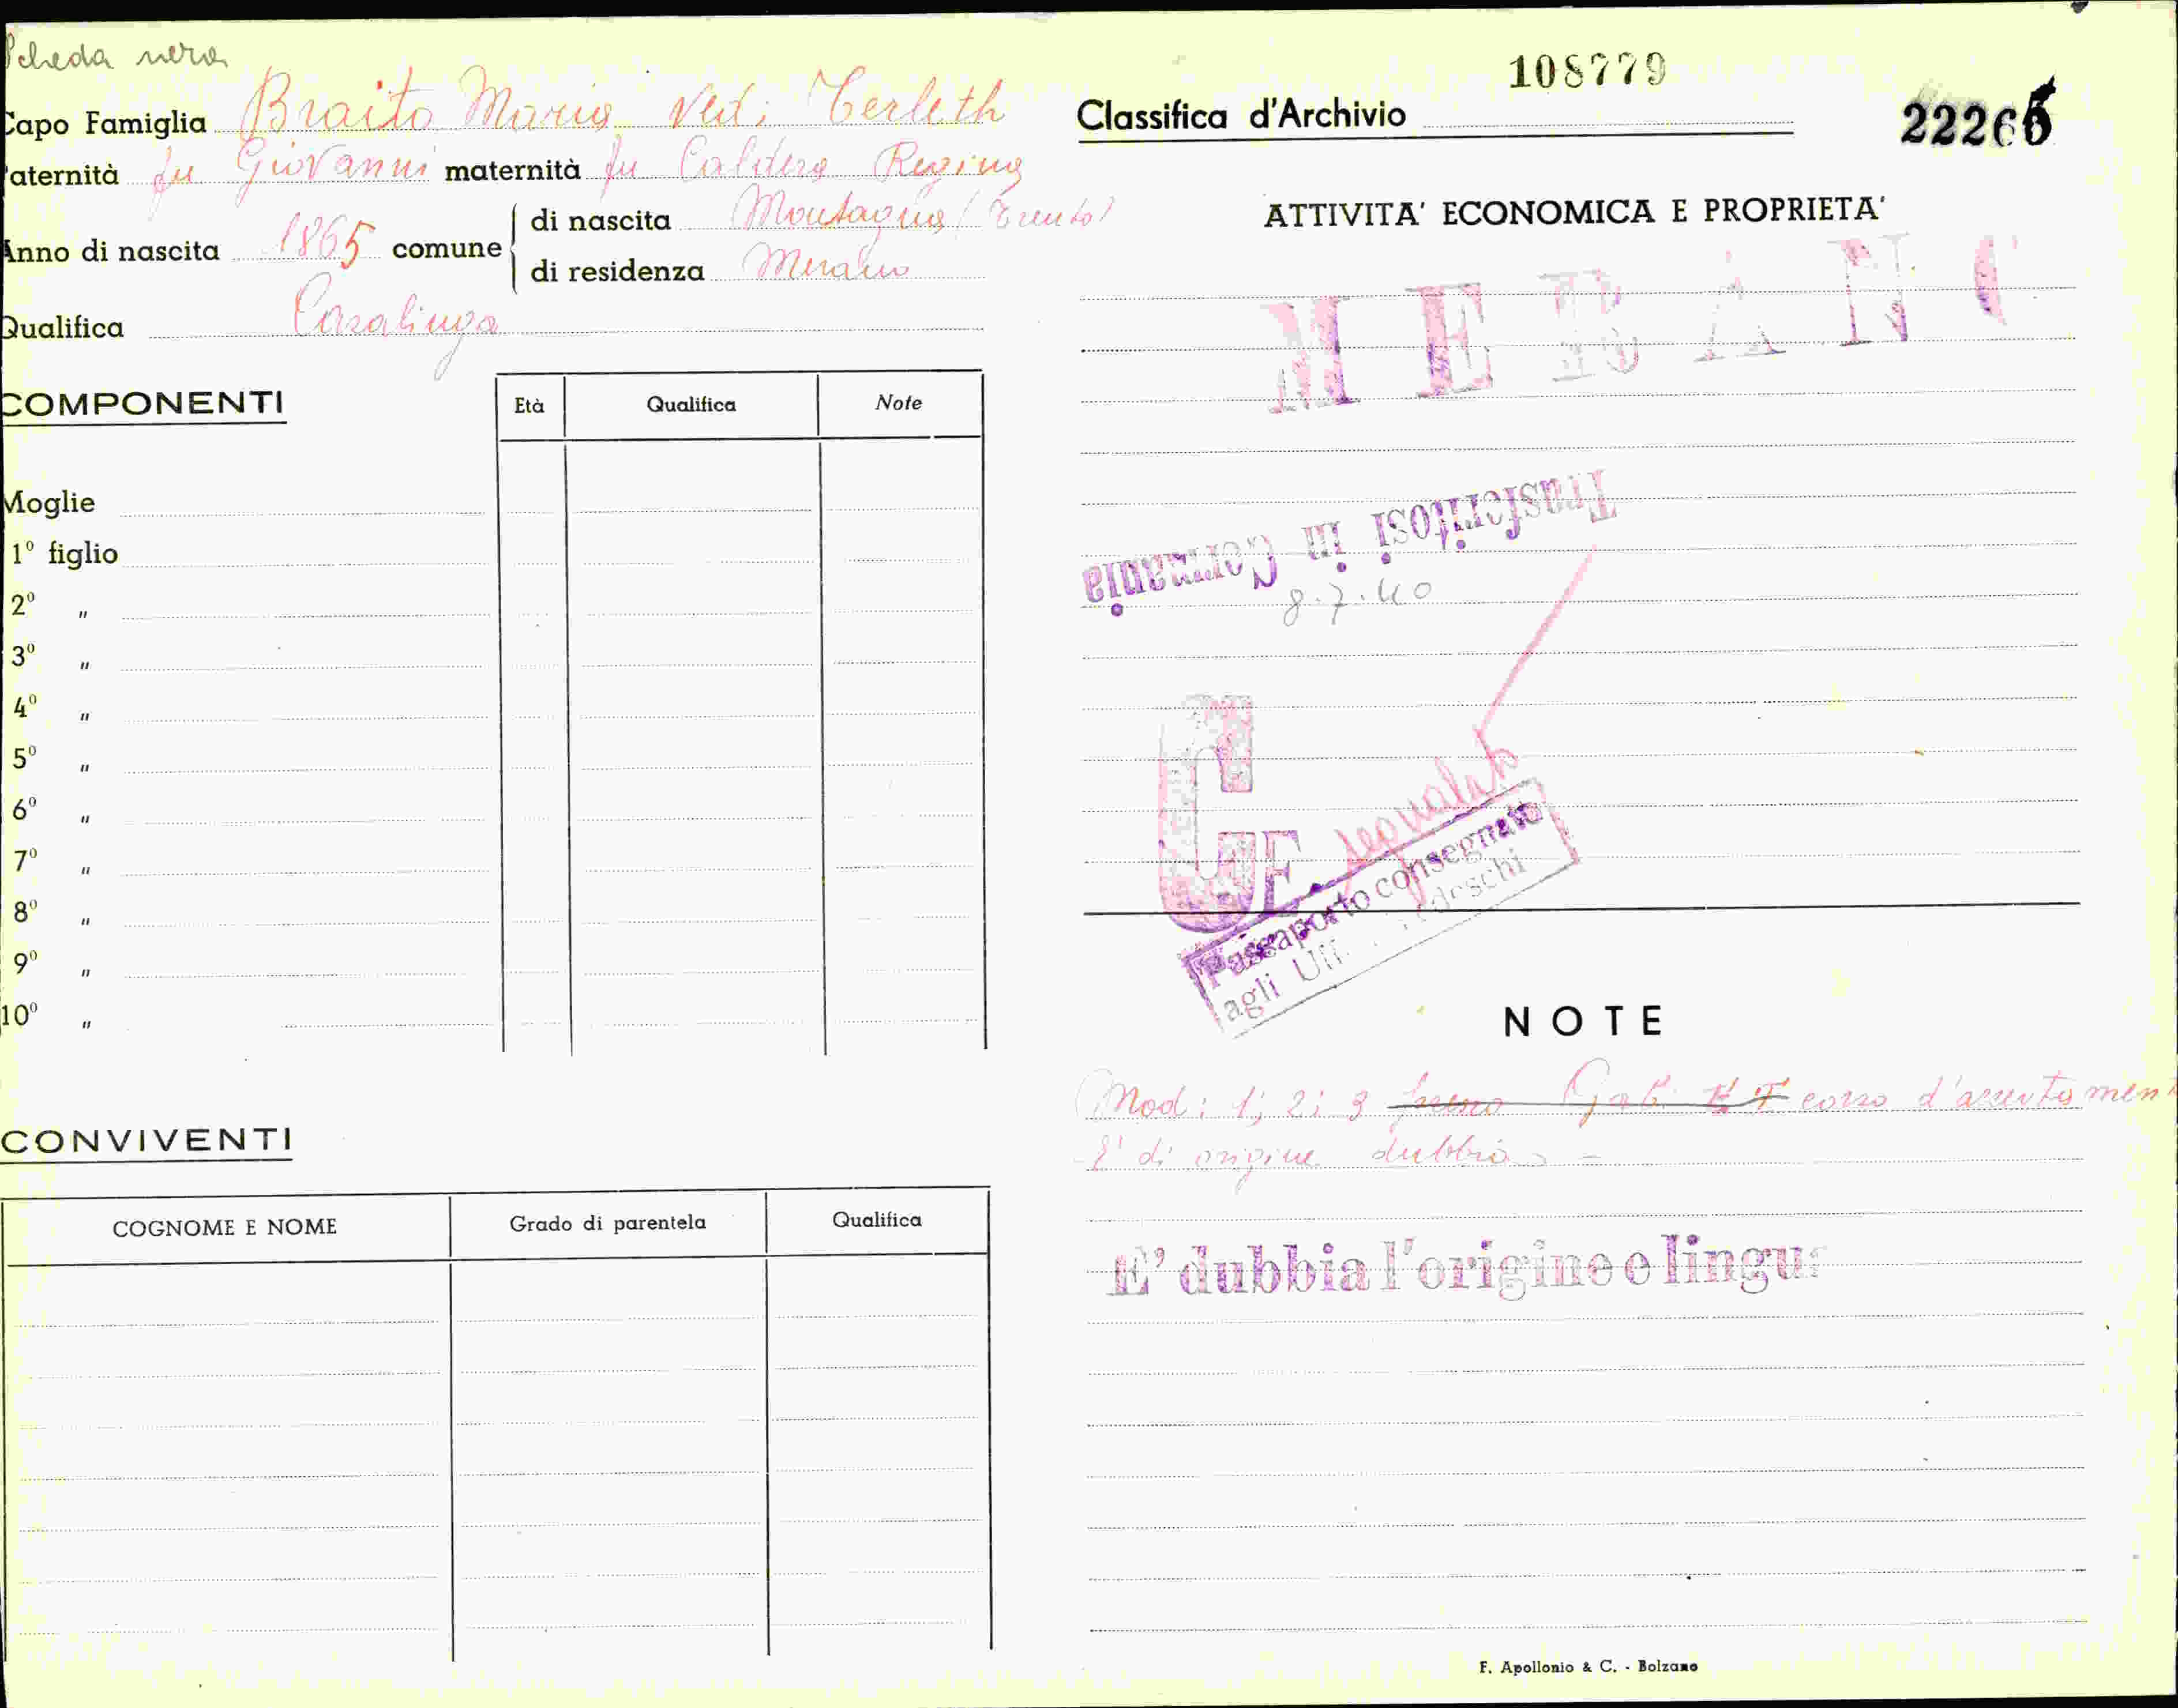 Scheda nera
Capo Famiglia Braito Maria Ved: Terleth
Paternità fu Giovanni maternità fu Caldera Regina
Anno di nascita 1865 comune di nascita Montagna (Trento)
di residenza Merano
Qualifica Casalinga
COMPONENTI
Età Qualifica Note
Moglie
1° figlio
2° "
3° "
4° "
5° "
6° "
7° "
8° "
9° "
10° "
CONVIVENTI
COGNOME E NOME Grado di parentela Qualifica
108779
Classifica d'Archivio
22266
ATTIVITA' ECONOMICA E PROPRIETA'
MERANO
Trasferitosi in Germania
8.7.40
G
GE
segnalato
Passaporto consegnato
agli Uff. Tedeschi
NOTE
Mod: 1; 2; 3 corso d'accertamen
E' di origine dubbia -
E' dubbia l'origine e lingua
F. Apollonio & C. - Bolzano